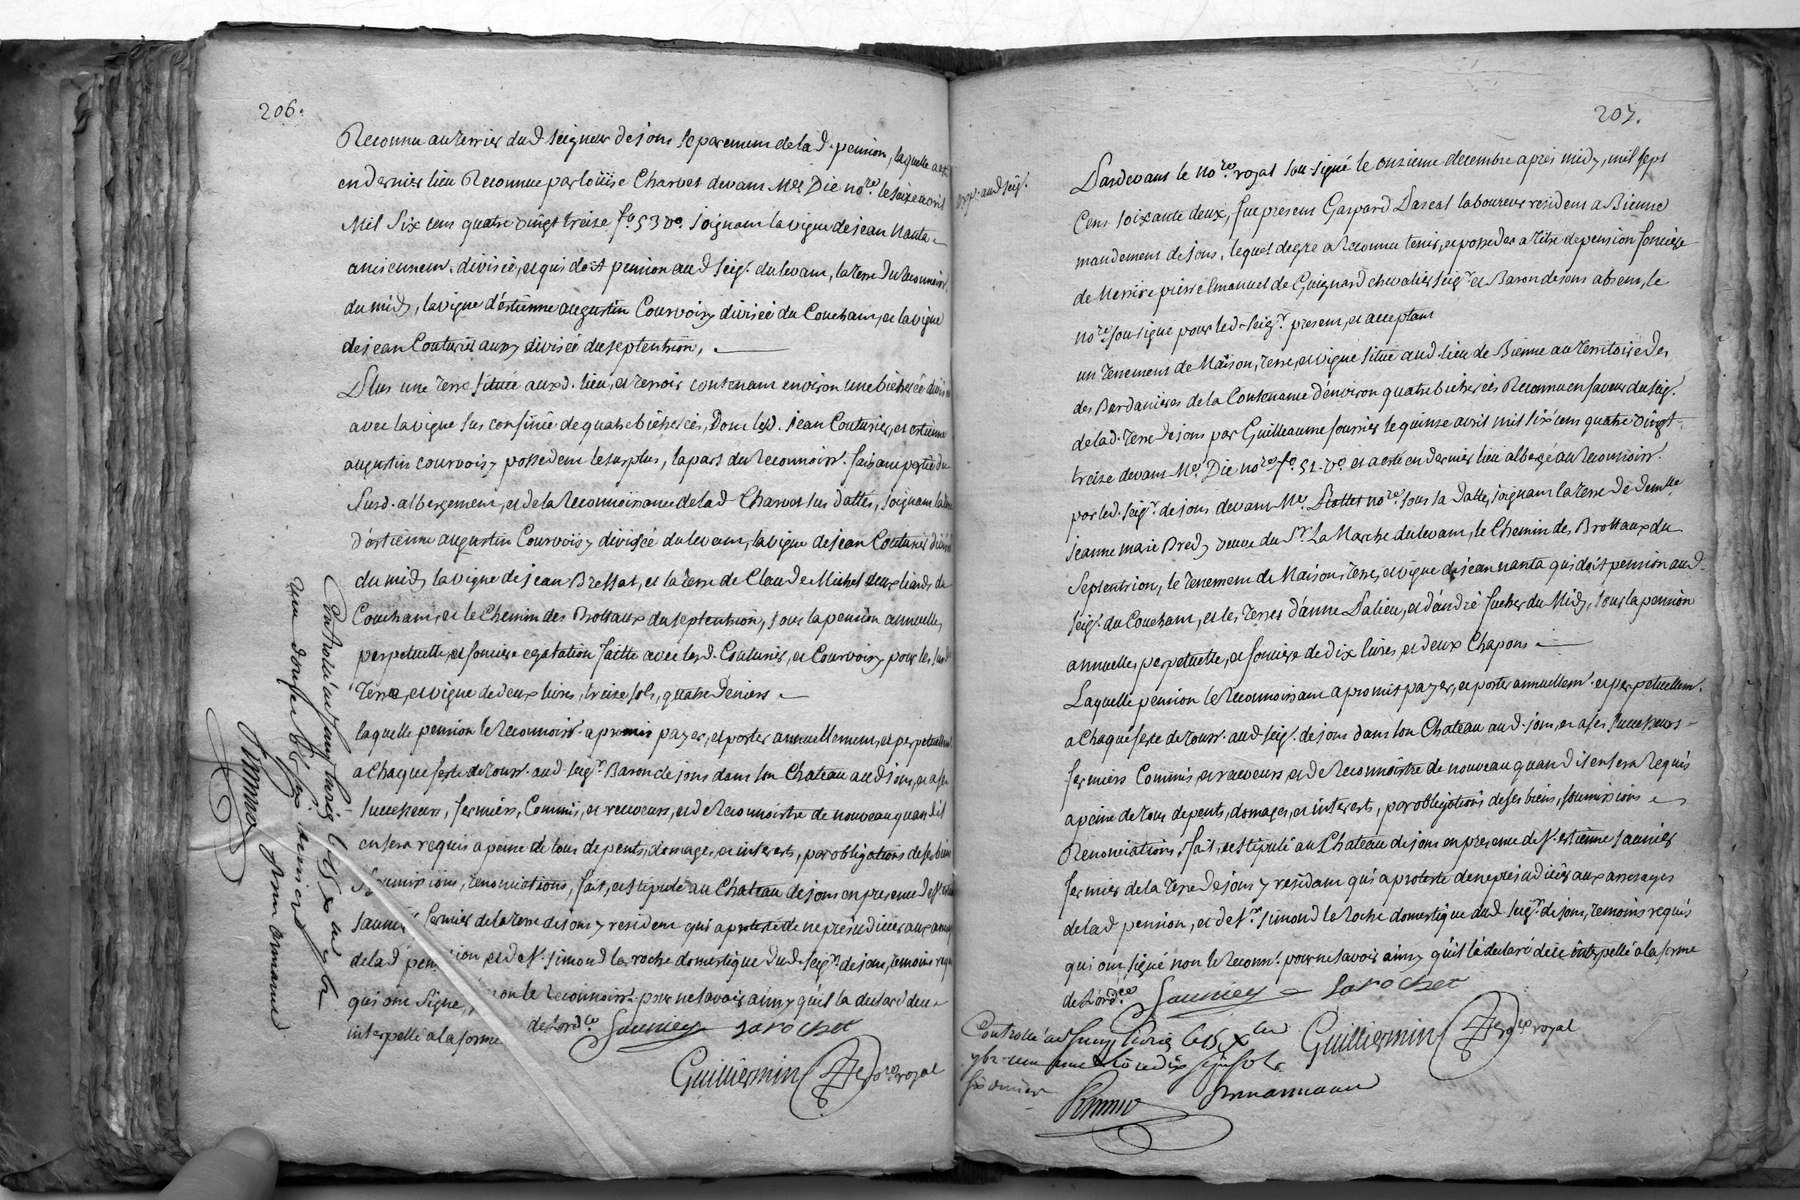 206.
Reconnu au terrier dud seigneur de jons separement de lad. pension, laquelle a esté
en dernier lieu Reconnue par louise Charvet devant Me Die nore. le seize avril
Mil Six cens quatre vingt treize fo. 53 vo. joignant la vigne de jean Nanta
anciennemt. divisée, et qui doit pension aud seigr. du levant, la terre du Reconnoisst.
du midy, la vigne d'éstienne augustin Courvoisy divisée du Couchant, et la vigne
de jean Couturier aussy divisée du septentrion,
Plus une Terre Située auxd. lieu, et terroir contenant environ une bicherée divisée
avec la vigne sus confinée de quatre bicherées, Dont lesd. jean Couturier, et estienne
augustin courvoisy possedent le surplus, la part du Reconnoisst. faisant partie du
Susd. albergement, et de la Reconnoissance de lad Charvet sus dattés, joignant la terre
d'éstienne augustin Courvoisy divisée du levant, la vigne de jean Couturier divisée
du midy la vigne de jean Bressat, et la terre de Claude Michel deux liards du
Couchant, et le Chemin des Brottaux du septentrion, sous la pension annuelle,
perpetuelle, et fonciere egalation faitte avec lesd. Couturier, et Courvoisy pour les susd
Terre, et vigne de deux livres, treize sols, quatre deniers
laquelle pension le Reconnoisst. a promis payer, et porter annuellement, et perpetuellemt.
a Chaque feste de touss. aud. seigr. Baron de jons dans son Chateau aud jons, et a ses
successeurs, fermiers, Commis, et receveurs, et de Reconnoistre de nouveau quand il
en sera requis a peine de tous depents, domages, et interests, par obligations de ses biens
Soumissions, renonciations, fait, et stipulé au Chateau de jons en presence de sr. estienne
saunier fermier de la terre de jons y resident qui a protesté de ne prejudicier aux arrerages
de lad pension, et de sr. simond la roche domestique dud. seigr. de jons, temoins requis
qui ont signé, non le Reconnoisst. pour ne savoir ainsy qu'il la declaré deue
interpellé a la forme de L'ordce. Saunier Larochet
Guilliermin nore royal
Controllé
207.
Pardevant le nore. royal sousigné le onzieme decembre apres midy, mil sept
Cens soixante deux, fut present Gaspard Pascal laboureur resident a Bienne
mandement de jons, lequel de gre a Reconnu tenir, et posseder a titre de pension fonciere
de Messire pierre Emanuel de Guignard chevalier seigr. et Baron de jons absent, le
nore. sousigné pour led. seigr. present, et acceptant
un tenement de Maison, terre, et vigne situé aud. lieu de Bienne au territoire de
des Bardanieres de la Contenance d'environ quatre bicherées Reconnu en faveur du seigr.
de lad. terre de jons par Guilleaume fournier le quinze avril mil six cens quatre vingt
treize devant Me. Die nore. fo. 52. vo. et a esté en dernier lieu albergé au Reconnoisst.
par led. seigr. de jons devant Me. nore. sous sa datte, joignant la terre de demlle.
jeanne marie Bredy veuve du Sr. La Marche du levant, le Chemin des Brottaux du
Septentrion, le tenement de Maison, terre, et vigne de jean nanta qui doit pension aud.
seigr. du Couchant, et les terres d'anne Palieu, et d'andré fucher du Midy, sous la pension
annuelle, perpetuelle, et fonciere de dix livres, et deux Chapons
Laquelle pension le Reconnoissant a promis payer, et porter annuellemt. et perpetuellemt.
a Chaque feste de touss. aud. seigr. de jons dans son Chateau aud. jons, et a ses successeurs
fermiers Commis, et receveurs, et de Reconnoistre de nouveau quand il en sera Requis
a peine de tous depents, domages, et interests, par obligations de ses biens, soumissions
Renonciations, fait, et stipulé au Chateau de jons en presence de sr. estienne saunier
fermier de la terre de jons y residant qui a protesté de ne prejudicier aux arrerages
de lad pension, et de sr. simond la roche domestique aud. seigr. de jons, temoins requis
qui ont signé non le Reconnt. pour ne savoir ainsy qu'il la declaré de ce interpellé a la forme
de L'ordce. Saunier Larochet
Guilliermin nore royal
Controllé